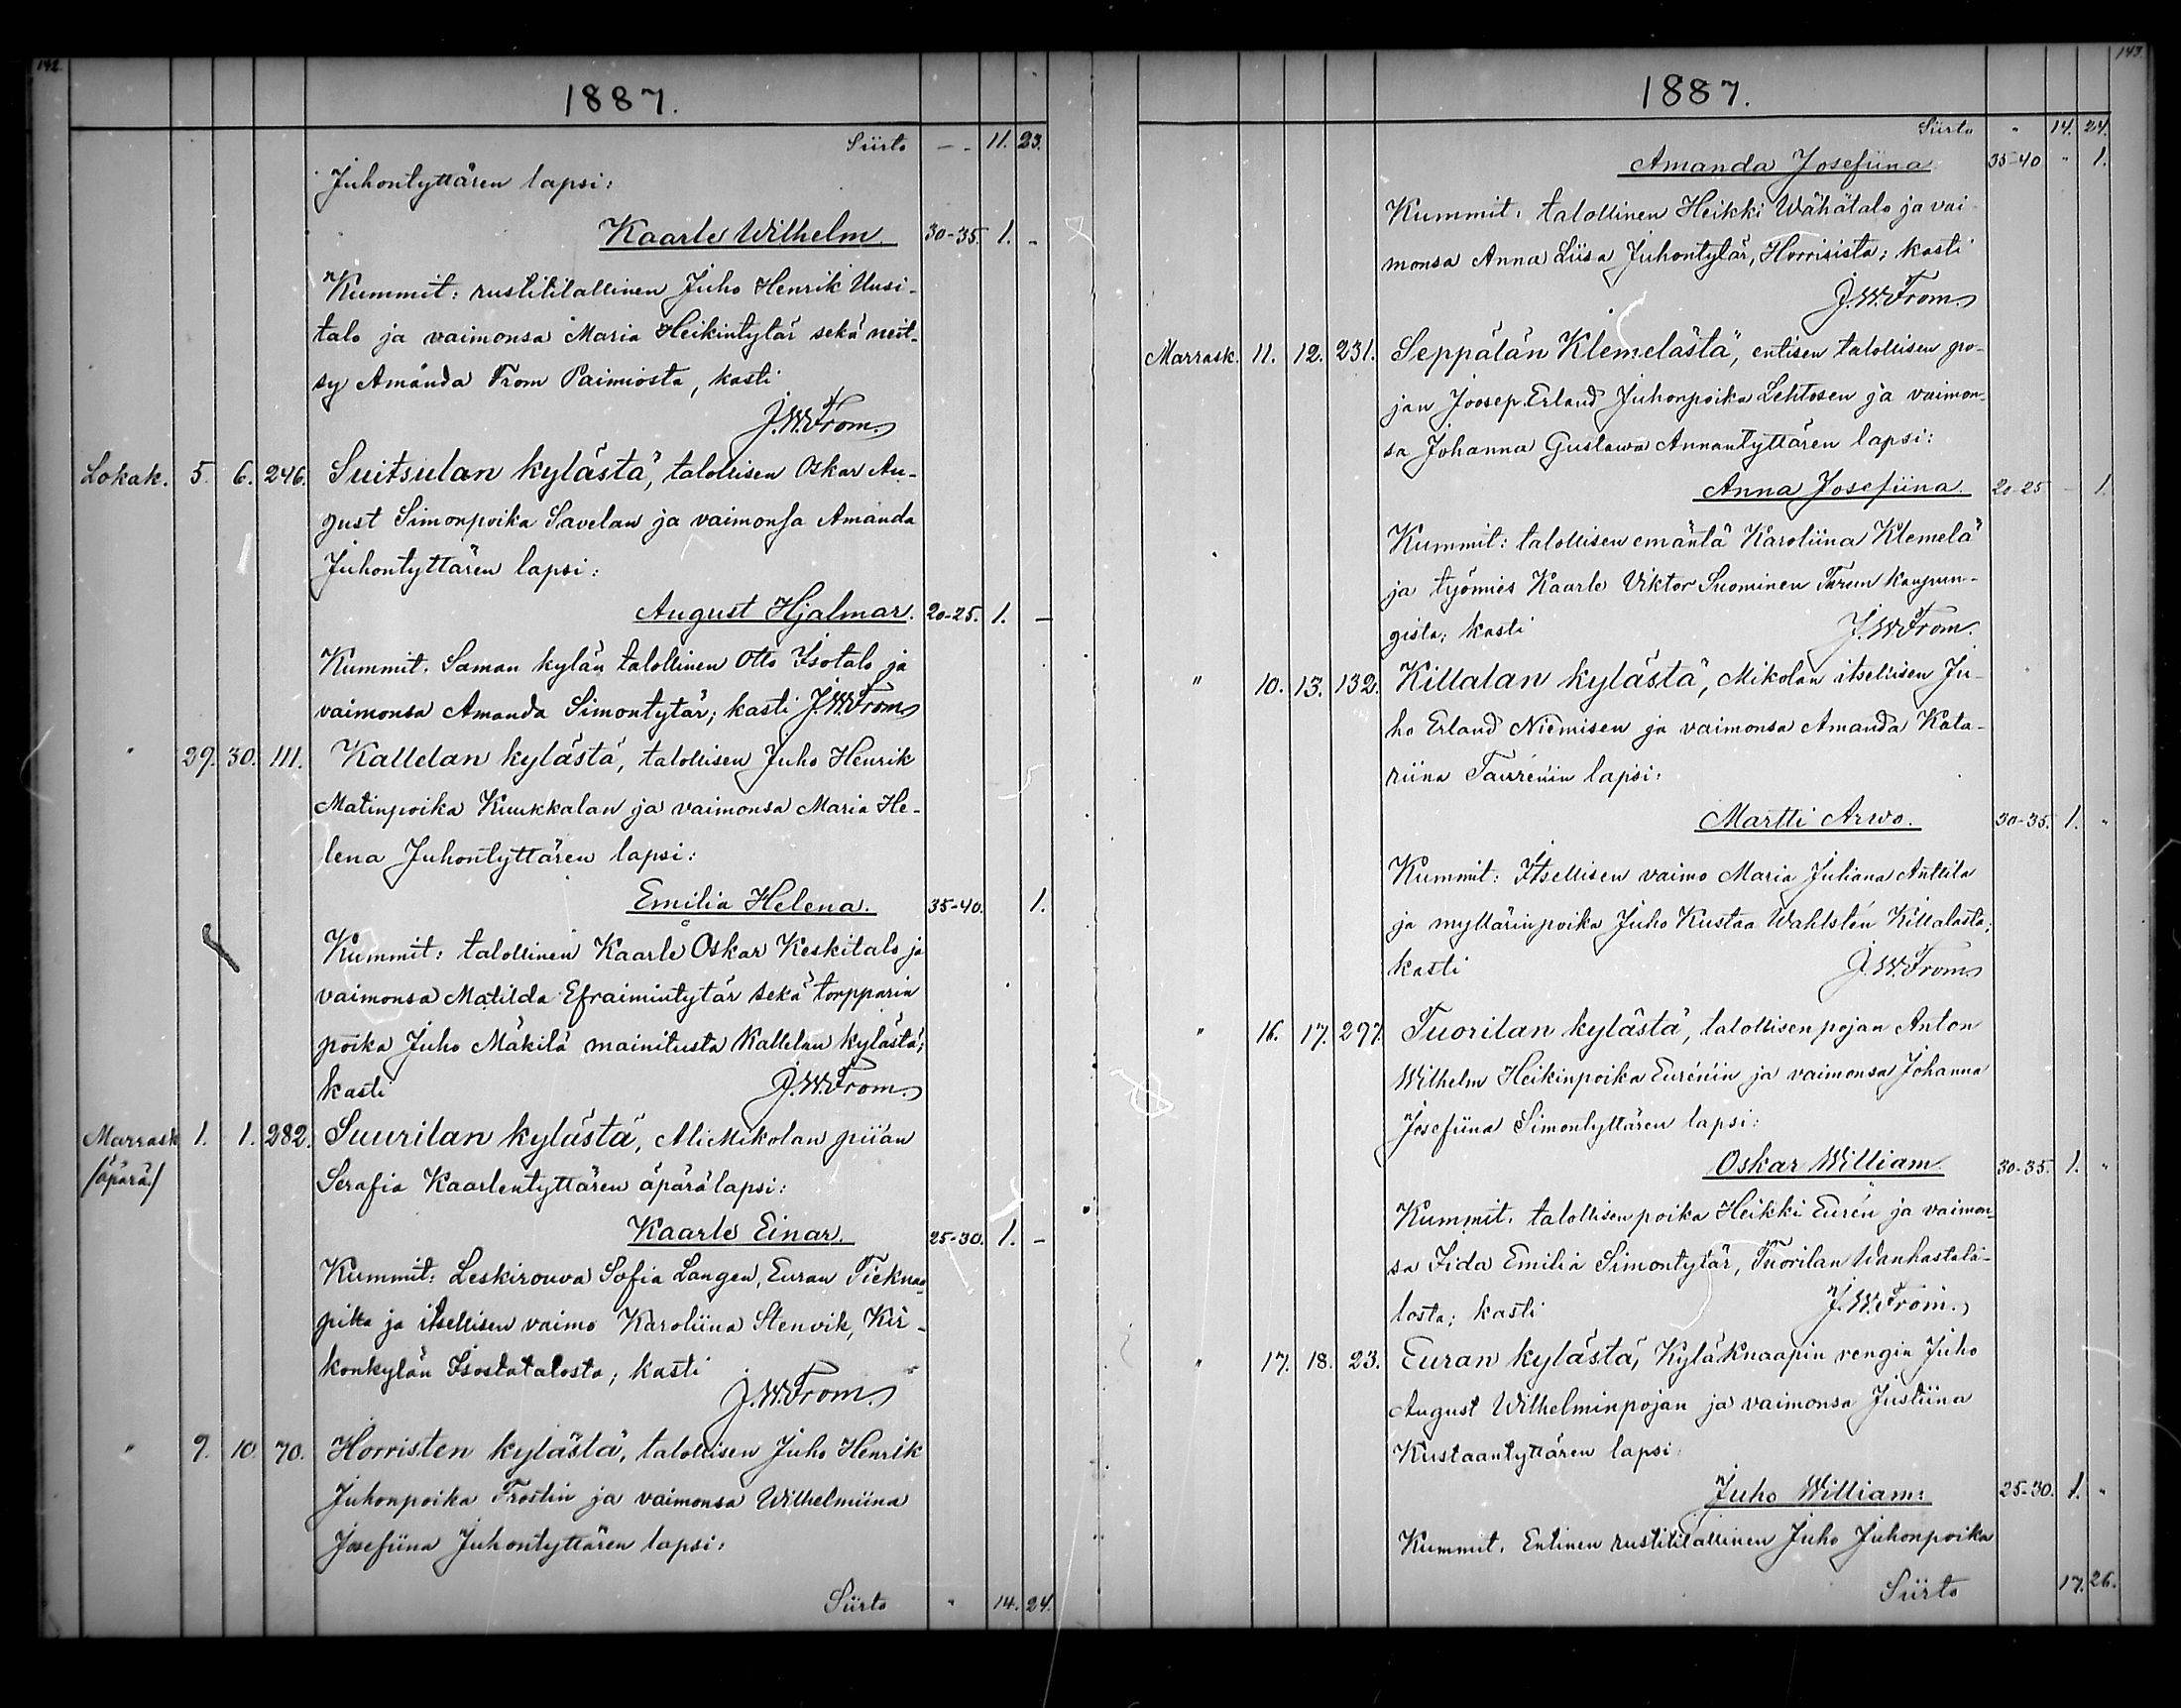 142.
1887.
Siirto - - 11. 23.
Juhontyttären lapsi:
Kaarle Wilhelm. 30-35. 1. -
Kummit: rustitilallinen Juho Henrik Uusi-
talo ja vaimonsa Maria Heikintytär sekä neit-
sy Amanda From Paimiosta, kasti
J.W.From.
Lokak. 5. 6. 246. Suitsulan kylästä, talollisen Oskar Au-
gust Simonpoika Savelan ja vaimonsa Amanda
Juhontyttären lapsi:
August Hjalmar. 20-25. 1. -
Kummit. Saman kylän talollinen Otto Isotalo ja
vaimonsa Amanda Simontytär; kasti J.W.From
" 29. 30. 111. Kallelan kylästä, talollisen Juho Henrik
Matinpoika Kuukkalan ja vaimonsa Maria He-
lena Juhontyttären lapsi:
Emilia Helena. 35-40. 1.
Kummit: talollinen Kaarle Oskar Keskitalo ja
vaimonsa Matilda Efraimintytär sekä torpparin
poika Juho Mäkilä mainitusta Kallelan kylästä;
kasti J.W.From.
Marrask. 1. 1. 282. Suurilan kylästä, AliMikolan piian
/äpärä/ Serafia Kaarlentyttären äpärälapsi:
Kaarle Einar. 25-30. 1. -
Kummit: Leskirouva Sofia Langen, Euran
ja itsellisen vaimo Karoliina Stenvik, Kir-
konkylän Isostatalosta; kasti
J.W.From.
" 9. 10. 70. Horristen kylästä, talollisen Juho Henrik
Juhonpoika Frostin ja vaimonsa Wilhelmiina
Josefiina Juhontyttären lapsi:
Siirto " 14. 24.
143.
1887.
Siirto " 14. 24.
Amanda Josefiina 35-40 " 1.
Kummit: talollinen Heikki Wähätalo ja vai
monsa Anna Liisa Juhontytär, Horrisista; kasti
J.W.From.
Marrask. 11. 12. 231. Seppälän Klemelästä, entisen talollisen po-
jan Joosep Erland Juhonpoika Lehtosen ja vaimon-
sa Johanna Gustawa Annantyttären lapsi:
Anna Josefiina. 20-25 - 1.
Kummit: talollisen emäntä Karoliina Klemelä
ja työmies Kaarle Viktor Suominen Turun kaupun-
gista; kasti J.W.From.
" 10. 13. 132. Killalan kylästä, Mikolan itsellisen Ju-
ho Erland Niemisen ja vaimonsa Amanda Kata-
riina Taurénin lapsi:
Martti Arwo. 30-35. 1. "
Kummit: Itsellisen vaimo Maria Juliana Anttila
ja myllärinpoika Juho Kustaa Wahlstén Killalasta;
kasti J.W.From
" 16. 17. 297. Tuorilan kylästä, talollisen pojan Anton
Wilhelm Heikinpoika Eurénin ja vaimonsa Johanna
Josefiina Simontyttären lapsi:
Oskar William. 30-35. 1. "
Kummit. talollisen poika Heikki Eurén ja vaimon-
sa Iida Emilia Simontytär, Tuorilan Wanhastala-
losta; kasti J.W.From.
" 17. 18. 23. Euran kylästä, Kyläknaapin rengin Juho
August Wilhelminpojan ja vaimonsa Justiina
Kustaantyttären lapsi:
Juho William: 25-30. 1. "
Kummit. Entinen rustitilallinen Juho Juhonpoika
Siirto 17. 26.